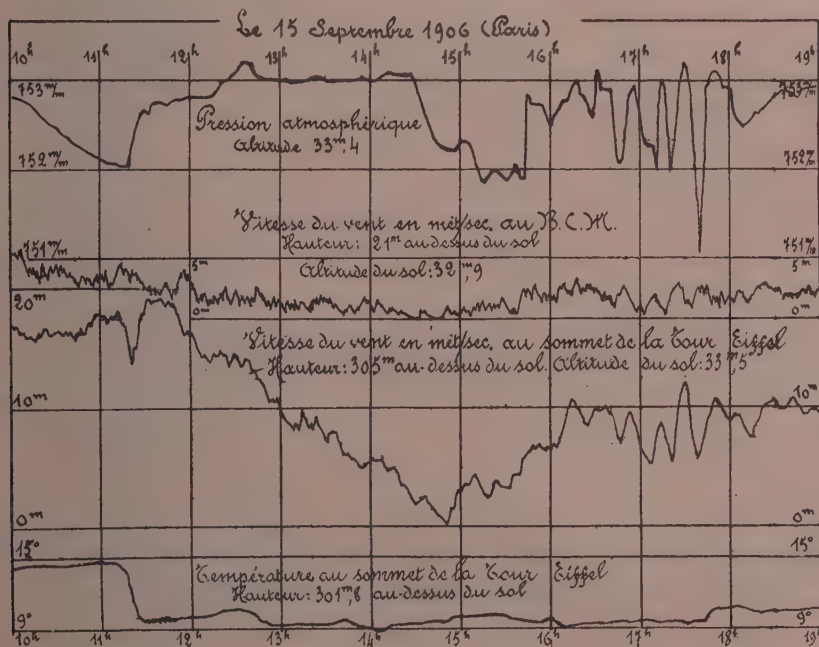 Le 15 Septembre 1906 (Paris)
10h 11h 12h 13h 14h 15h 16h 17h 18h 19h
753m/m 753m/m
Pression atmosphérique
Altitude 33m,4
752m/m 752m/m
Vitesse du vent en mèt/sec. au B.C.M.
Hauteur: 21m au-dessus du sol
751m/m 5m 751m/m 5m
Altitude du sol: 32m,9
20m 0m 0m
Vitesse du vent en mèt/sec. au sommet de la Tour Eiffel
Hauteur: 305m au-dessus du sol. Altitude du sol: 33m,5
10m 10m
0m 0m
15° 15°
Température au sommet de la Tour Eiffel
Hauteur: 301m,8 au-dessus du sol
9° 9°
10h 11h 12h 13h 14h 15h 16h 17h 18h 19h